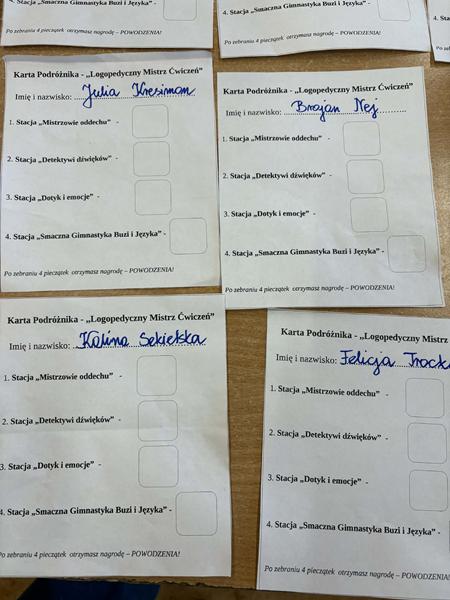 4. Stacja „Smaczna Gimnastyka Buzi i Języka” -
Po zebraniu 4 pieczątek otrzymasz nagrodę – POWODZENIA!
4. Stacja „Smaczna Gimnastyka Buzi i Języka” -
Po zebraniu 4 pieczątek otrzymasz nagrodę – POWODZENIA!
4. Sta
Po zebr
Karta Podróżnika - „Logopedyczny Mistrz Ćwiczeń”
Imię i nazwisko: Julia Kresiman
1. Stacja „Mistrzowie oddechu” -
2. Stacja „Detektywi dźwięków” -
3. Stacja „Dotyk i emocje” -
4. Stacja „Smaczna Gimnastyka Buzi i Języka” -
Po zebraniu 4 pieczątek otrzymasz nagrodę – POWODZENIA!
Karta Podróżnika - „Logopedyczny Mistrz Ćwiczeń”
Imię i nazwisko: Brajan Nej
1. Stacja „Mistrzowie oddechu” -
2. Stacja „Detektywi dźwięków” -
3. Stacja „Dotyk i emocje” -
4. Stacja „Smaczna Gimnastyka Buzi i Języka” -
Po zebraniu 4 pieczątek otrzymasz nagrodę – POWODZENIA!
Karta Podróżnika - „Logopedyczny Mistrz Ćwiczeń”
Imię i nazwisko: Kalina Sekielska
1. Stacja „Mistrzowie oddechu” -
2. Stacja „Detektywi dźwięków” -
3. Stacja „Dotyk i emocje” -
4. Stacja „Smaczna Gimnastyka Buzi i Języka” -
Po zebraniu 4 pieczątek otrzymasz nagrodę – POWODZENIA!
Karta Podróżnika - „Logopedyczny Mistrz
Imię i nazwisko: Felicja
1. Stacja „Mistrzowie oddechu” -
2. Stacja „Detektywi dźwięków” -
3. Stacja „Dotyk i emocje” -
4. Stacja „Smaczna Gimnastyka Buzi i Języka” -
Po zebraniu 4 pieczątek otrzymasz nagrodę – POWODZENIA!